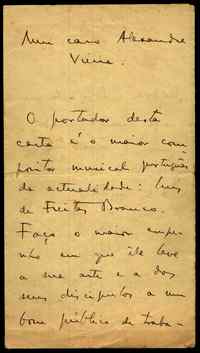 Meu caro Alexandre
Vieira.
O portador desta
carta é o maior com-
positor musical português
da actualidade: Luis
de Freitas Branco.
Faço o maior empe-
nho em que êle leve
a sua arte e a dos
seus discipulos a um
bom público de traba-